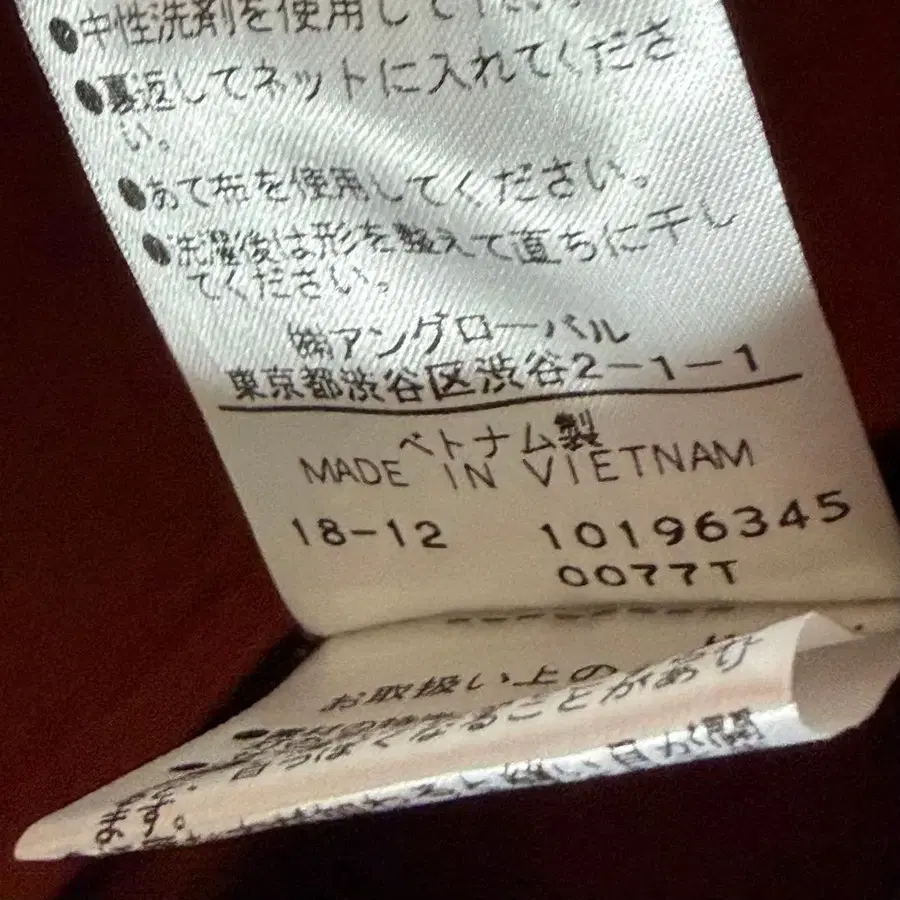 ●中性洗剤を使用して下さい
●裏返してネットに入れてくださ
い。
●あて布を使用してください。
●洗濯後は形を整えて直ちに干し
てください。
㈱アングローバル
東京都渋谷区渋谷2-1-1
ベトナム製
MADE IN VIETNAM
18-12 10196345
0077T
お取扱い上の
なることがあり
ます。
縫い目が開